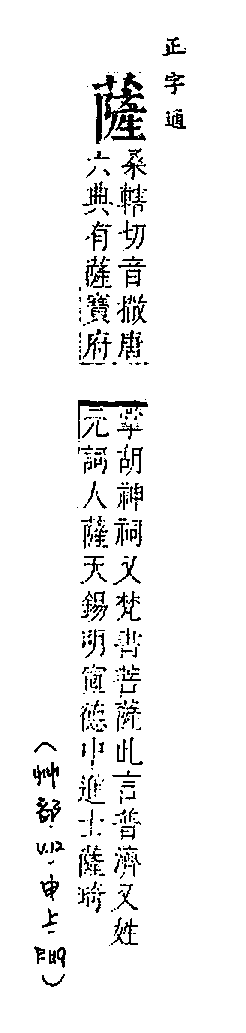 正字通
薩
桑轄切音撒唐
六典有薩寶府
掌胡神祠又梵書菩薩此言普濟又姓
元詞人薩天錫明宣德中進士薩琦
(艸部.V.12.申上.P.119)